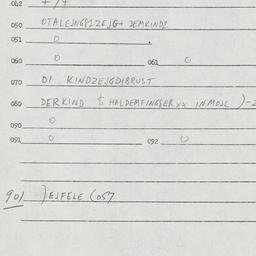 042
050 OTALEJNGPIZEJG+ DEMKINDZ
051 0 .
060 0 061 0
070 DI KINDZEJGDIBRUST
080 DERKIND S HALDEMFINGER xx INMOJL )-2
090 0
091 0 092 0
90) )EJFELE (057